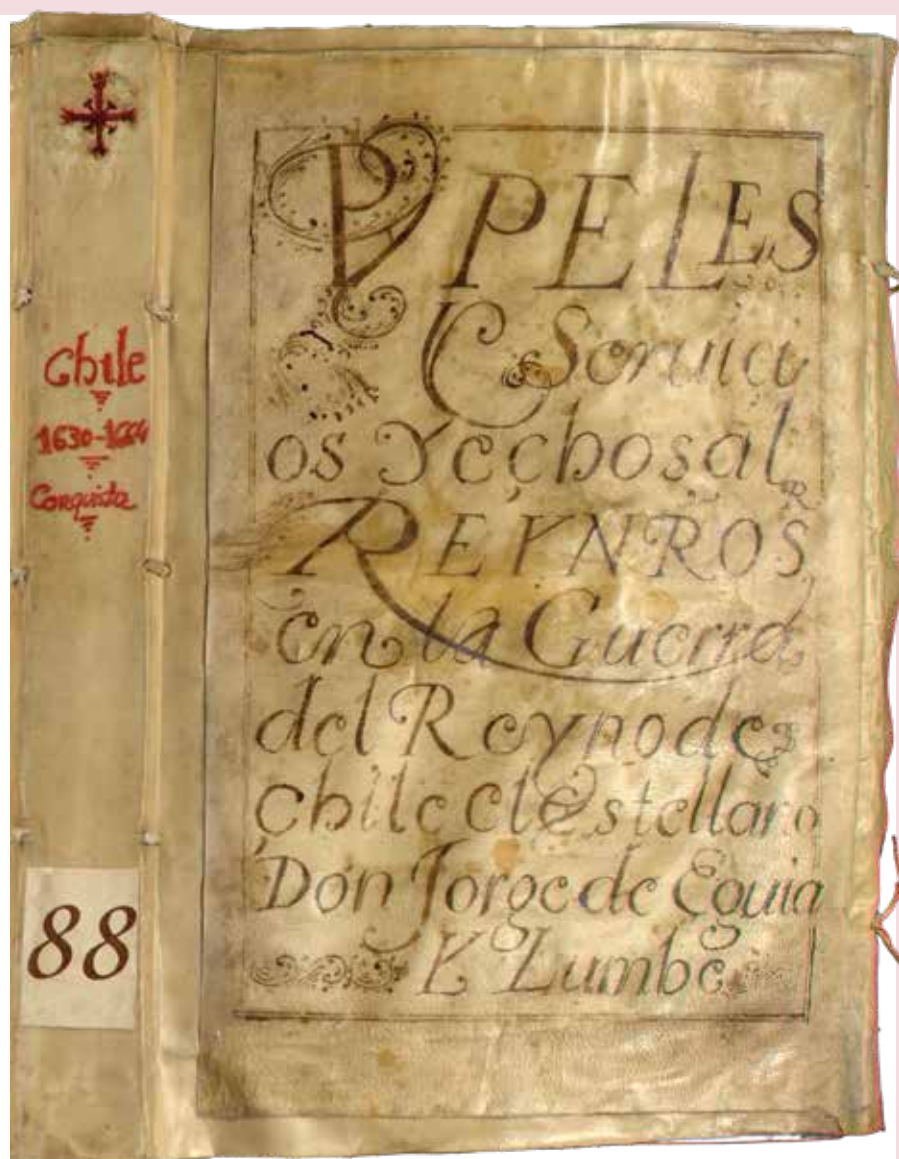 Chile
1630-
Conquista
88
PAPELES
Seruici
os Yechos al
REY NRO SR
en la Guerra
del Reyno de
chile el
Don Jorge de Eguia
Y Lumbe